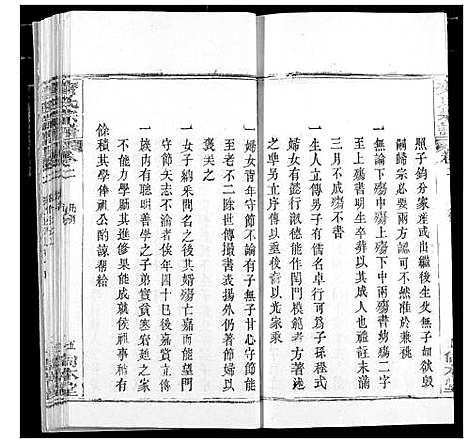 照子鈞分家産或出繼後生父無子如欲毀
嗣歸宗必要兩方認可不然只准兼祧
一無論下殤中殤上殤下中兩殤書幼殤二字
至上殤書者明生卒葬以其可成人也禮註未滿
三月不成殤不書
一生人立傳男子有儒名卓行可爲子孫程式
婦女有懿行淑德能作閨門模範者方可
立傳以垂於後以光家乘
一婦女青年守節不論有子無子甘心守節能
至老不二除世傳撮書表揚外仍著節婦以
褒美之
一女子納采問名之後其婿殤亡而能望門
守節矢志不渝者俟年四十已後嘉賞立傳
一族內有聰明善學之子弟實貧寠窘廹之家
不能力學屬其進修果能成就俟祖事稍有
餘積其學俸祖公酌諒幫給